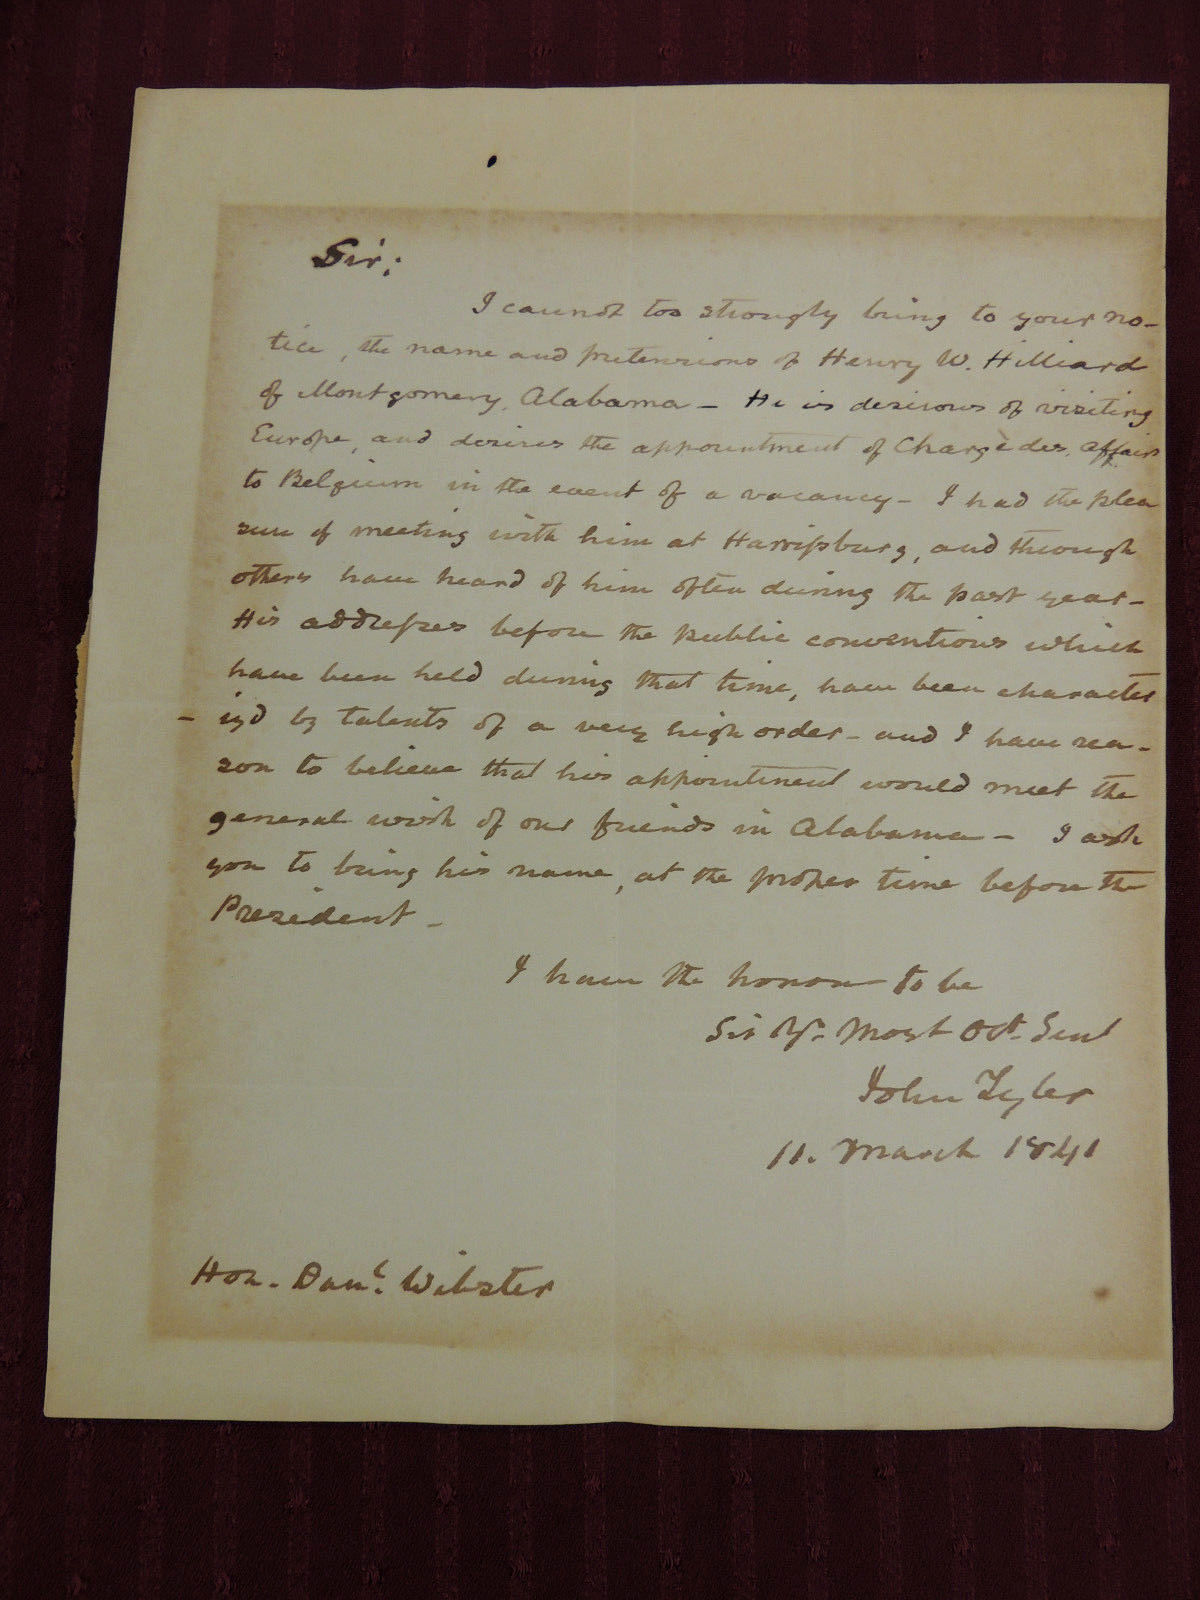 Sir:
I cannot too strongly bring to your no-
tice, the name and pretensions of Henry W. Hilliard
of Montgomery, Alabama - He is desirous of visiting
Europe, and desires the appointment of Chargè des. affairs
to Belgium in the event of a vacancy - I had the plea
sure of meeting with him at Harrissburg, and through
others have heard of him often during the past year -
His addresses before the public conventions which
have been held during that time, have been character
- iz'd by talents of a very high order - and I have rea-
son to believe that his appointment would meet the
general wish of our friends in Alabama - I ask
you to bring his name, at the proper time before the
President -
I have the honour to be
Sir Yr. Most Obt. Servt
John Tyler
11. March 1841
Hon. Danl. Webster